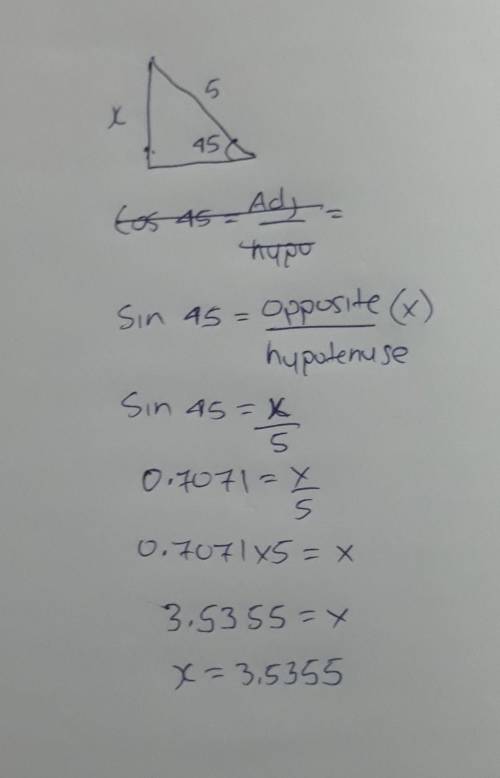 5
x
45
Cos 45 = Adj/hypo =
Sin 45 = opposite (x)/hypotenuse
Sin 45 = x/5
0.7071 = x/5
0.7071 x 5 = x
3.5355 = x
x = 3.5355